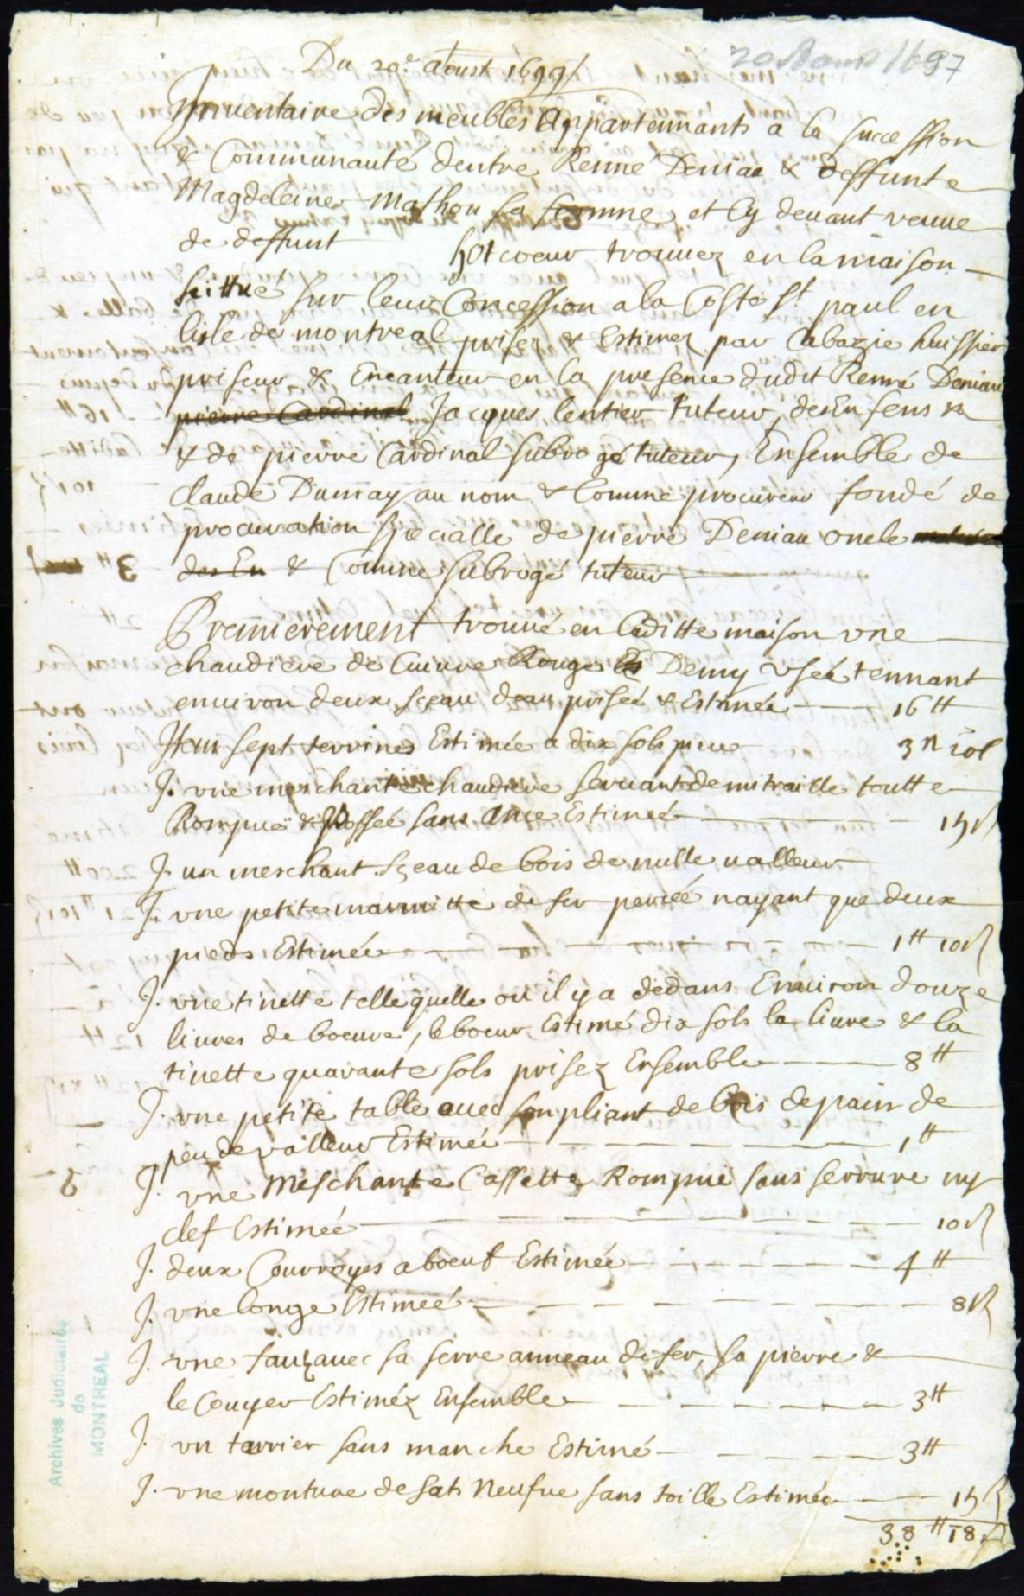 20 Aoust 1697
Du 20e. aoust 1699
Jnuentaire des meubles Appartennants a la succession
& Communauté dentre Renné Deniau & deffunte
Magdeleine Mathou sa femme, et Cy deuant veuue
de deffunt hotcoeur trouuez en la maison
scittué sur leur Concession a la Coste St. paul en
lisle de montreal prisez & Estimez par Cabazie huissier
priseur & Encanteur en la presence dudit Renné Deniau
pierre Cardinal Jacques lentier tuteur, des Enfens
& de pierre Cardinal subrogé tuteur, Ensemble de
claude Dumay au nom & Comme procureur fondé de
procuration specialle de pierre Deniau oncle
des En & Comme subrogé tuteur
Premierement trouué en laditte maison vne
chaudiere de Cuiure Rouge Demy vsée tennant
enuiron deux sceau deau prisée & Estimée 16 ₶
Jtem sept terrines Estimée a dix sols piece 3 ₶ 10s
J. vne meschante chaudiere seruant de mitraille toutte
Rompuë & bossée sans Ance Estimeé 15s
J. un meschant sceau de bois de nulle ualleur
J. vne petite marmitte de fer percée nayant que deux
pieds Estimée 1₶ 10s
J. vne tinette telle quelle ou il y a dedans Enuiron douze
liures de beurre, le beurre Estimé dix sols la liure & la
tinette quarante sols prisez Ensemble 8₶
J. vne petite table auec son pliant de bois de pain de
peu de valleur Estimée 1₶
J. vne Meschante Cassette Rompuë sans serrure ny
clef Estimée 10s
J. deux Courroyes a boeuf Estimée 4₶
J. vne longe Estimeé 8s
J. vne faulx auec sa serre anneau de fer, sa pierre &
le Couyer Estiméz Ensemble 3₶
J. vn tarrier sans manche Estimé 3₶
J. vne monture de sat Neufue sans toille Estimée 15s
38₶ 18s
Archives Judiciaires
de
MONTREAL